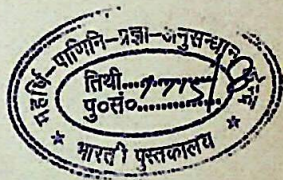 महर्षि-पाणिनि-प्रज्ञा-अनुसन्धान
तिथी............
पु०सं०............
* भारती पुस्तकालय *